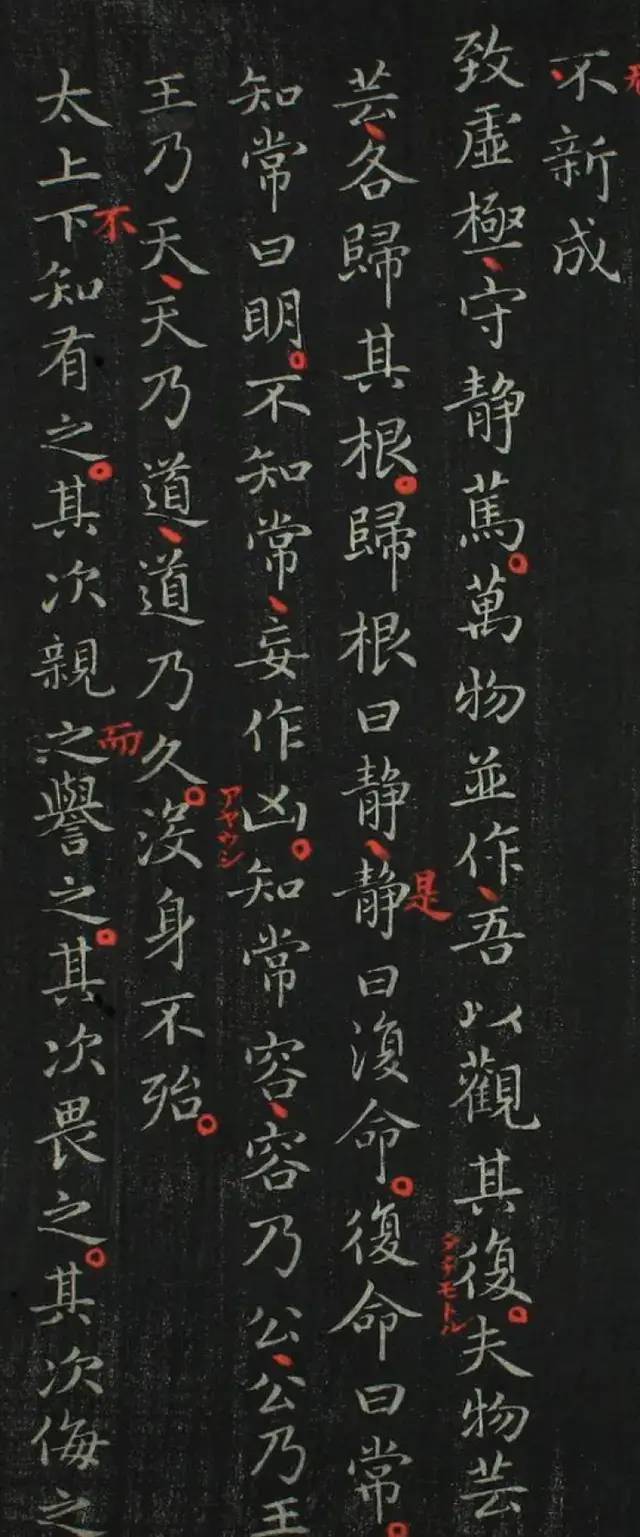 不新成
致虛極守静篤萬物並作吾以觀其復夫物芸
芸各歸其根歸根曰静静曰復命復命曰常
知常曰明不知常妄作凶知常容容乃公公乃王
王乃天天乃道道乃久沒身不殆
太上下知有之其次親之譽之其次畏之其次侮之
是
アヤウシ
不
而